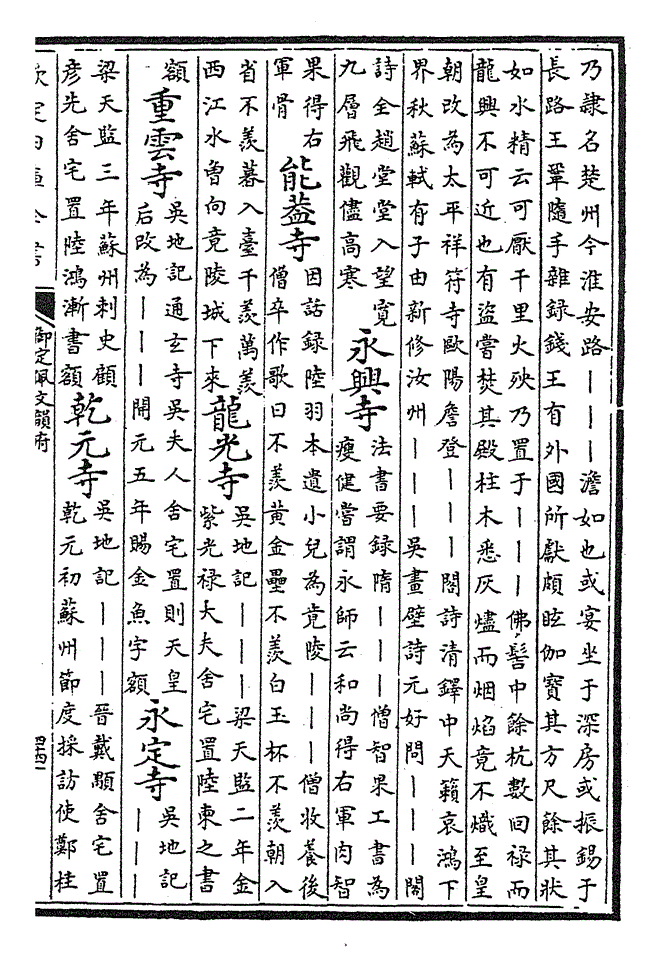 乃隷名楚州今淮安路丨丨丨澹如也或宴坐于深房或振錫于
長路王鞏隨手雜録錢王有外國所獻頗眩伽寶其方尺餘其狀
如水精云可厭千里火殃乃置于丨丨丨佛髻中餘杭數回禄而
龍興不可近也有盜嘗焚其殿柱木悉灰燼而烟焰竟不熾至皇
朝改為太平祥符寺歐陽詹登丨丨丨閣詩清鐸中天籟哀鴻下
界秋蘇軾有子由新修汝州丨丨丨吳畫壁詩元好問丨丨丨閣
詩全趙堂堂入望寛
九層飛觀儘高寒
永興寺
法書要録隋丨丨丨僧智果工書為
瘦健嘗謂永師云和尚得右軍肉智
果得右
軍骨
能葢寺
因話録陸羽本遺小兒為竟陵丨丨丨僧收養後
僧卒作歌曰不羨黄金罍不羨白玉杯不羨朝入
省不羨暮入臺千羨萬羨
西江水曽向竟陵城下來
龍光寺
吳地記丨丨丨梁天監二年金
紫光禄大夫舍宅置陸柬之書
額
重雲寺
吳地記通玄寺吳夫人舍宅置則天皇
后改為丨丨丨開元五年賜金魚字額
永定寺
吳地記
丨丨丨
梁天監三年蘇州刺史顧
彦先舍宅置陸鴻漸書額
乾元寺
吳地記丨丨丨晉戴顒舍宅置
乾元初蘇州節度採訪使鄭桂
欽定四庫全書
御定佩文韻府